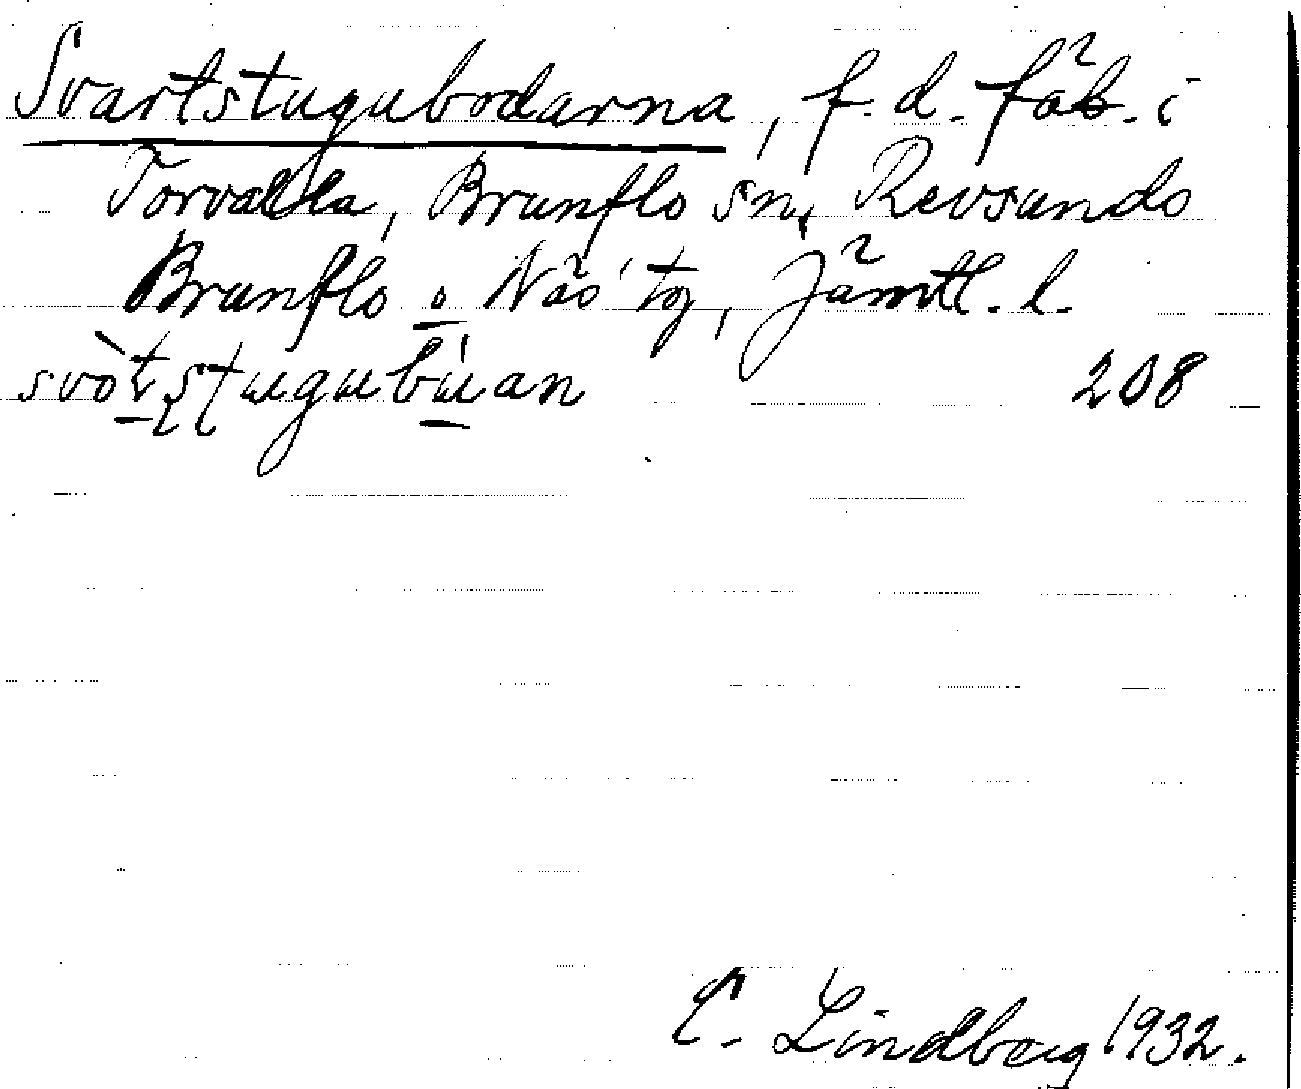 Svartstugubodarna, f. d. fäb. i
Torvalla, Brunflo sn, Revsunds
Brunflo o Näs' tg, Jämtl. l.
svòtstugubùan 208
C. Lindberg 1932.